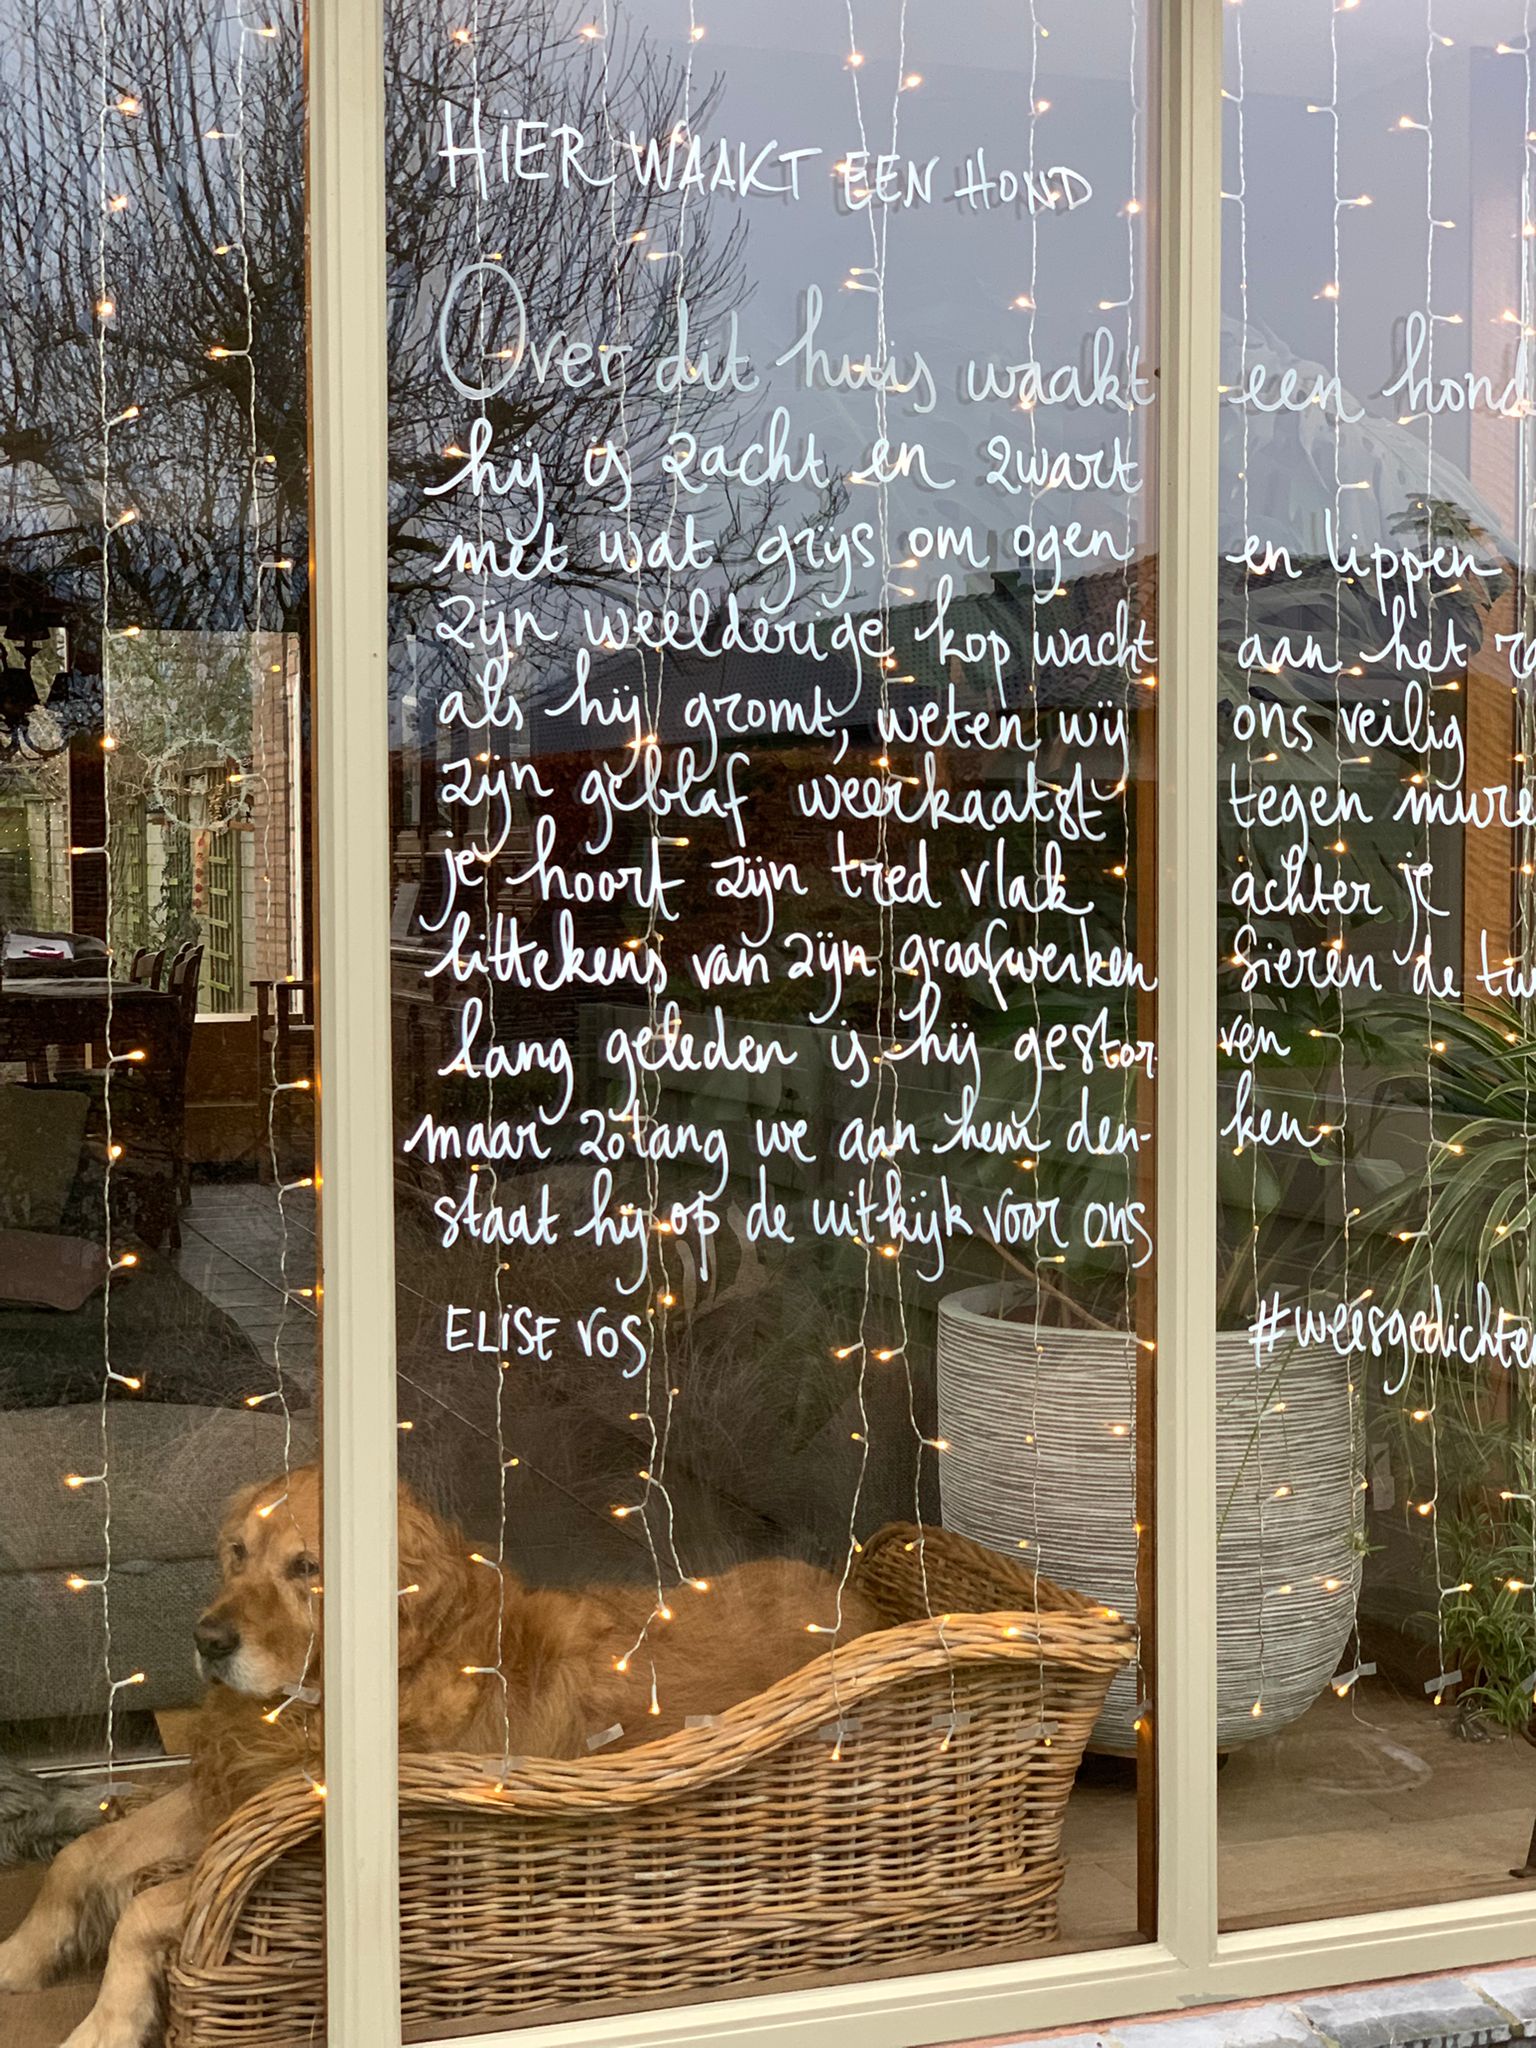 HIER WAAKT EEN HOND
Over dit huis waakt een hond
hij is zacht en zwart
met wat grijs om ogen en lippen
zijn weelderige kop wacht aan het
als hij gromt, weten wij ons veilig
zijn geblaf weerkaatst tegen
je hoort zijn tred vlak achter je
littekens van zijn graafwerken sieren de
lang geleden is hij gestor- ven
maar zolang we aan hem den- ken
staat hij op de uitkijk voor ons
ELISE VOS
#weesgedichten